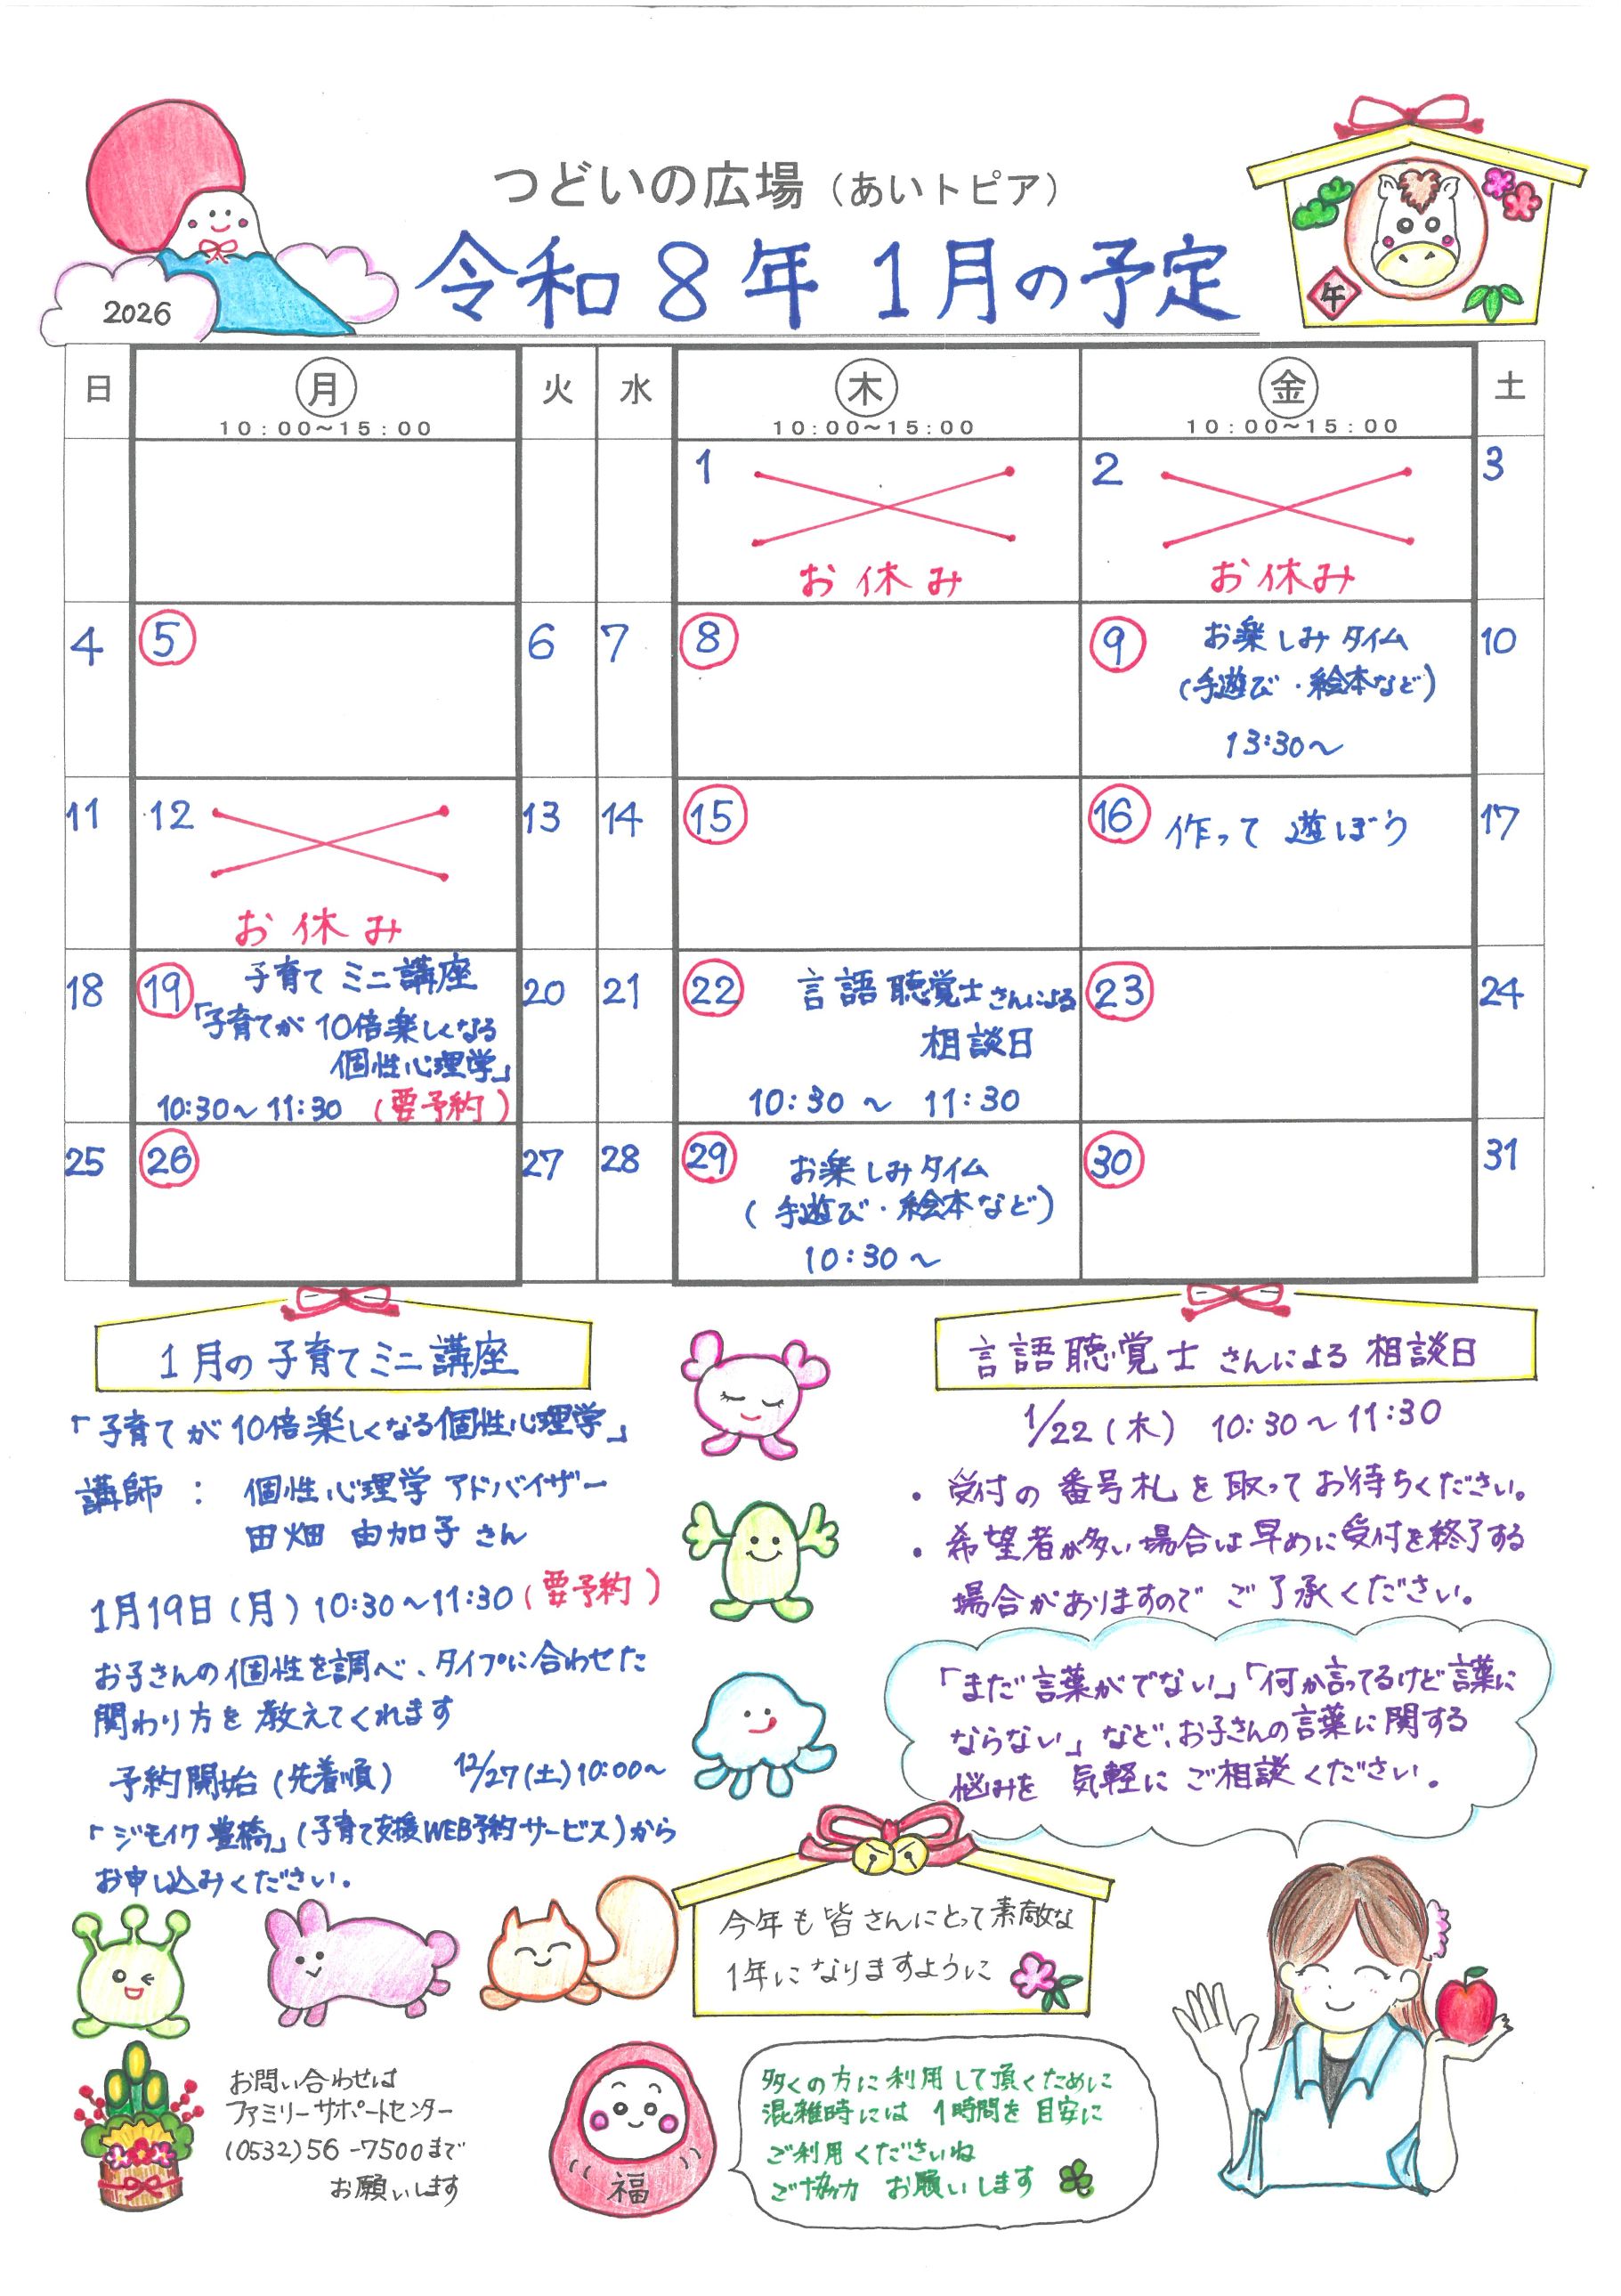 つどいの広場（あいトピア）
令和8年1月の予定
2026
午
日 月 火 水 木 金 土
10：00～15：00 10：00～15：00 10：00～15：00
1 お休み
2 お休み
3
4
5
6
7
8
9 お楽しみタイム
（手遊び・絵本など）
13:30～
10
11
12 お休み
13
14
15
16 作って遊ぼう
17
18
19 子育てミニ講座
「子育てが10倍楽しくなる
個性心理学」
10:30～11:30（要予約）
20
21
22 言語聴覚士さんによる
相談日
10:30～11:30
23
24
25
26
27
28
29 お楽しみタイム
（手遊び・絵本など）
10:30～
30
31
1月の子育てミニ講座
「子育てが10倍楽しくなる個性心理学」
講師：個性心理学アドバイザー
田畑由加子さん
1月19日（月）10:30～11:30（要予約）
お子さんの個性を調べ、タイプに合わせた
関わり方を教えてくれます
予約開始（先着順） 12/27（土）10:00～
「ジモイク豊橋」（子育て支援WEB予約サービス）から
お申し込みください。
言語聴覚士さんによる相談日
1/22（木）10:30～11:30
・受付の番号札を取ってお待ちください。
・希望者が多い場合は早めに受付を終了する
場合がありますのでご了承ください。
「まだ言葉がでない」「何か言ってるけど言葉に
ならない」など、お子さんの言葉に関する
悩みを気軽にご相談ください。
今年も皆さんにとって素敵な
1年になりますように
お問い合わせは
ファミリーサポートセンター
（0532）56-7500まで
お願いします
福
多くの方に利用して頂くために
混雑時には1時間を目安に
ご利用くださいね
ご協力お願いします